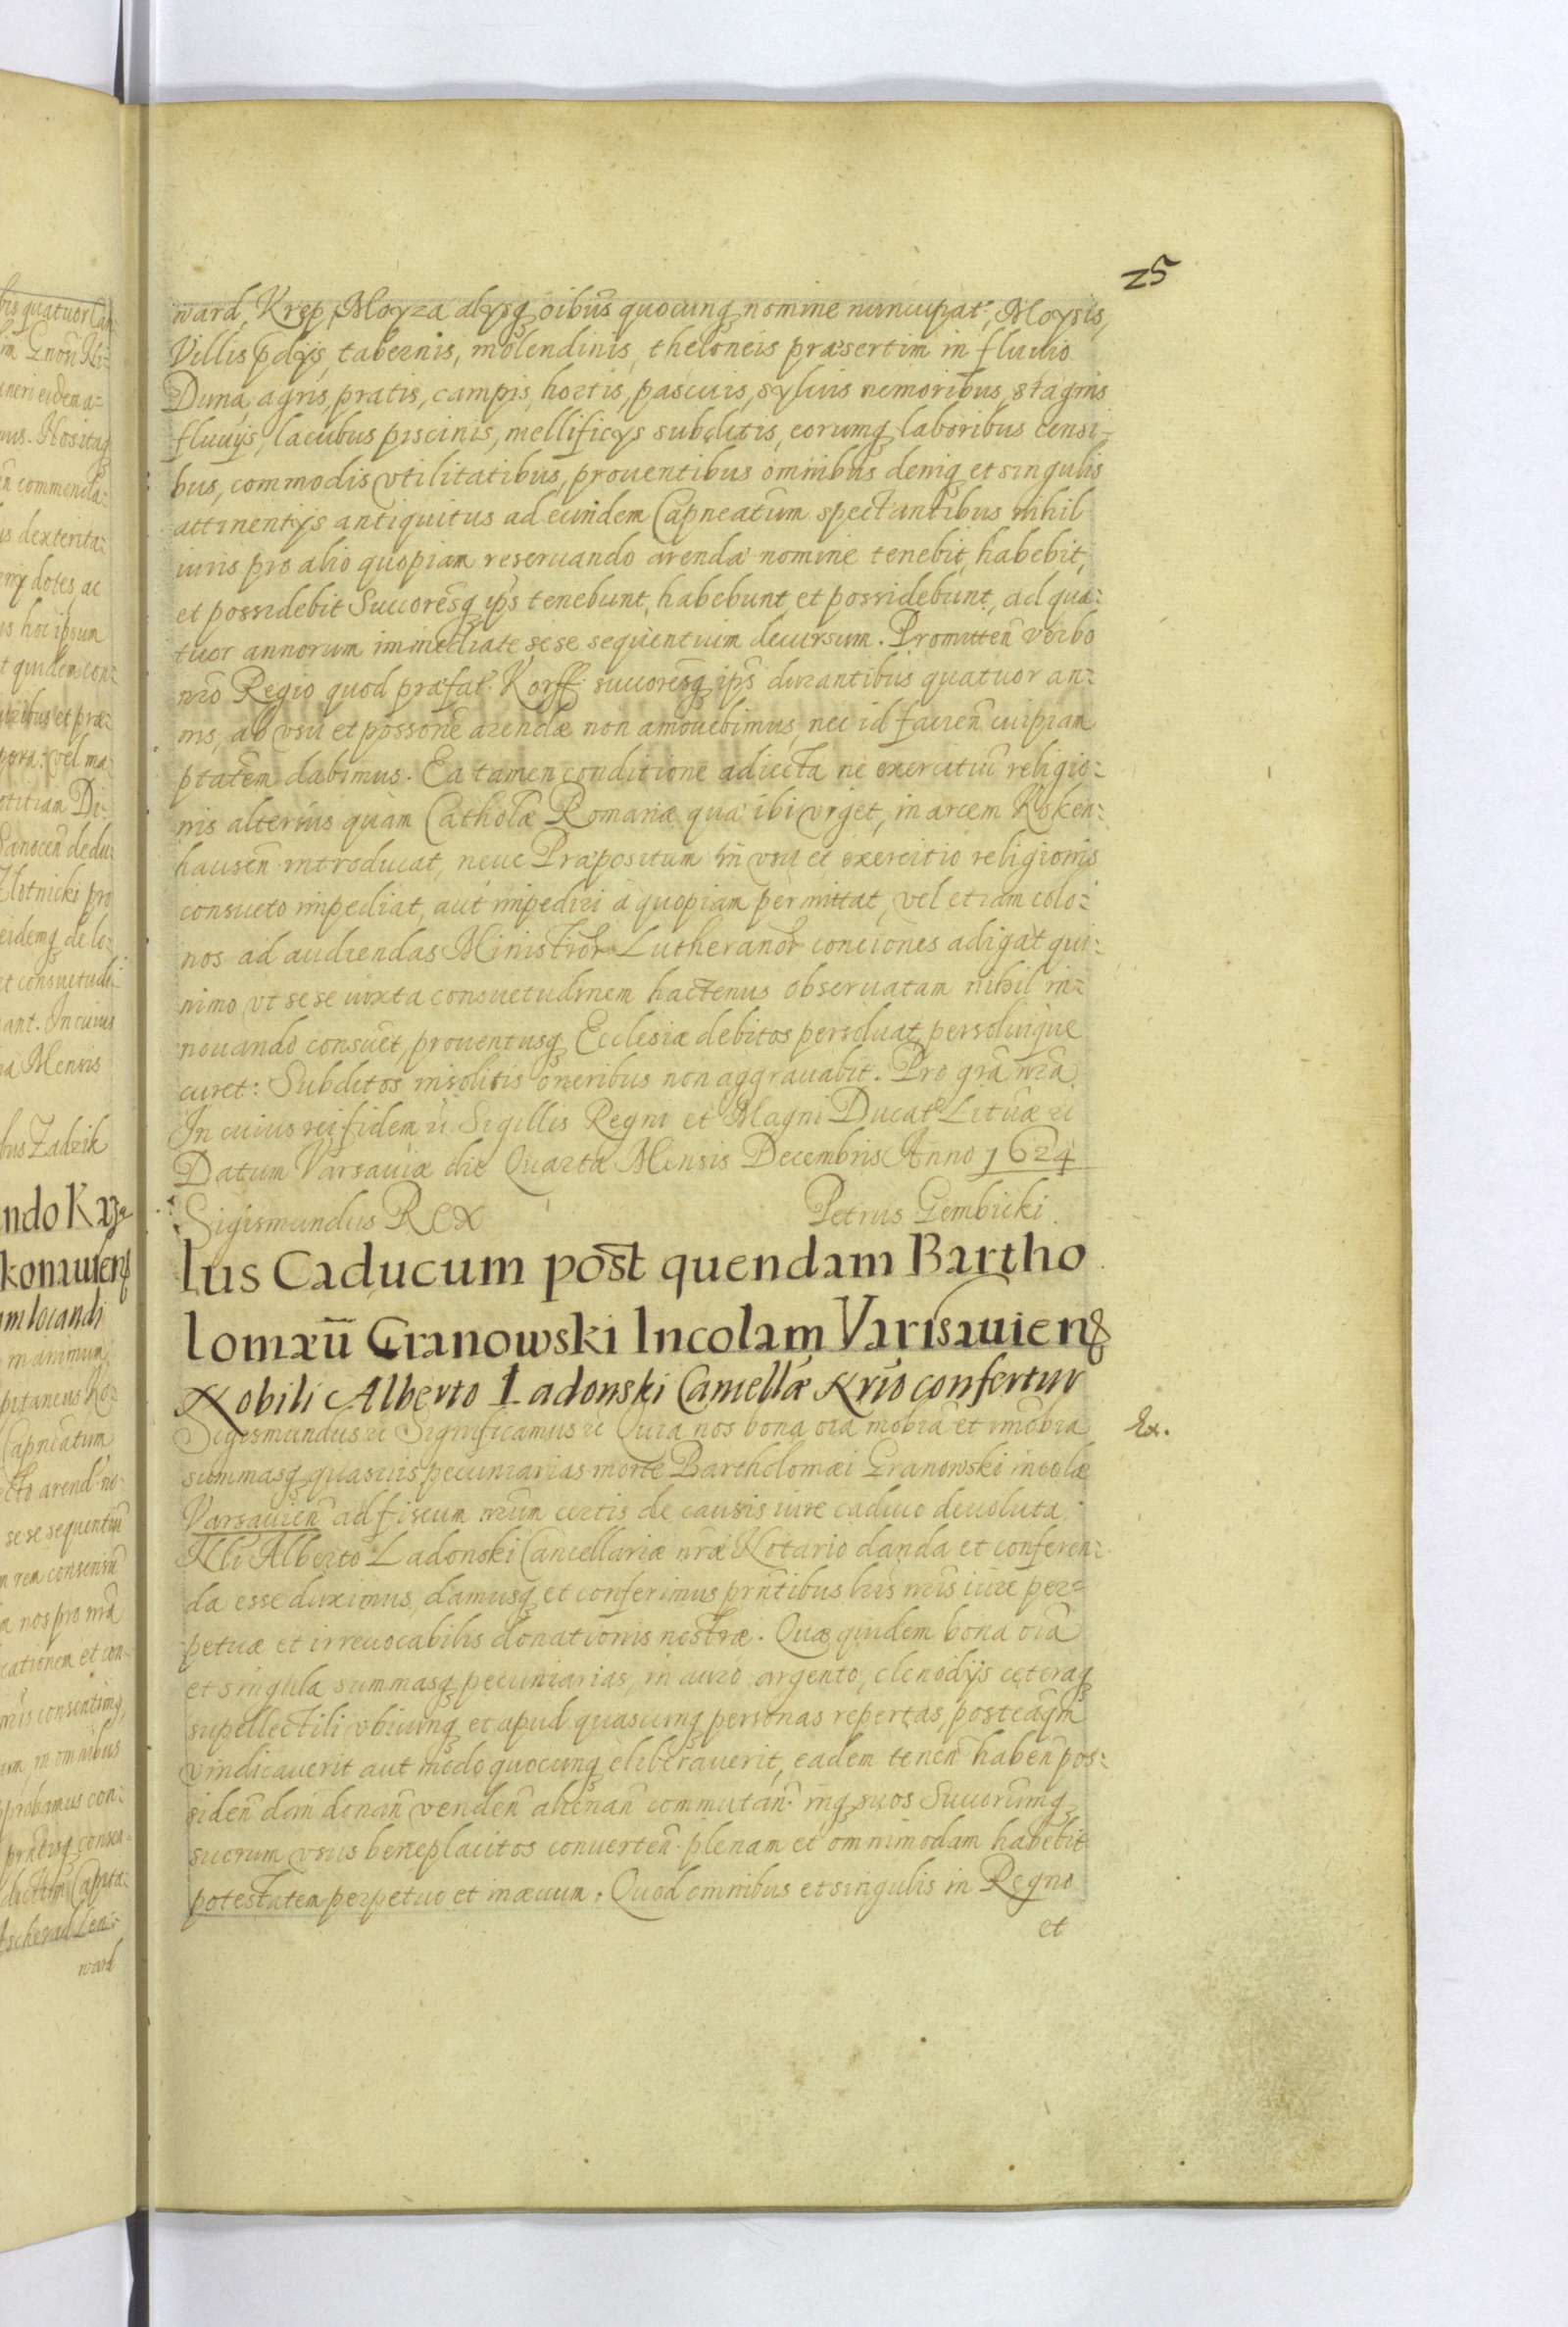 25
ward, Krep, Moyza alysq̃ oibus quocunq̃ nomine nuncupat:, Moysis,
Villis p̃dijs, tabernis, molendinis, theloneis præsertim in fluuio
Duna, agris, pratis, campis, hortis, pascuis, syluis nemoribus, stagnis
fluuijs, lacubus piscinis, mellificijs subditis, eorumq̃ laboribus censi-
bus, commodis vtilitatibus, prouentibus omnibus deniq̃ et singulis
attinentijs antiquitus ad eundem Capneatum spectantibus nihil
iuris pro alio quopiam reseruando arendæ nomine tenebit, habebit,
et possidebit Succoresq̃ ip̃s tenebunt, habebunt et possidebunt, ad qua-
tuor annorum immediate sese sequentium decursum. Promitten̄ verbo
nr̃o Regio quod præfat: Korff succoresq̃ ip̃s durantibus quatuor an-
nis, ab vsu et possone arendæ non amouebimus, nec id facien̄ cuipiam
ptatem dabimus. Ea tamen conditione adiecta ne exercitiũ religio-
nis alterius quàm Cathol̃æ Romanæ quæ ibi vrget, in arcem Koken-
hausen̄ introducat, neue Præpositum in vsu et exercitio religionis
consueto impediat, aut impediri à quopiam permittat, vel etiam colo-
nos ad audiendas Ministror̃ Lutheranor̃ conciones adigat qui-
nimo vt sese iuxta consuetudinem hactenus obseruatam nihil in-
nouando consuet, prouentusq̃ Ecclesiæ debitos persoluat, persoluique
curet: Subditos insolitis oneribus non aggrauabit. Pro grã nr̃a
In cuius rei fidem &c. Sigillis Regni et Magni Ducat: Lit̃uæ &c
Datum Varsauiæ die Quarta Mensis Decembris Anno 1624
Sigismundus Rex Petrus Gembicki.
Ius Caducum post quendam Bartho
lomæũ Granowski Incolam Varisauien̄
Nobili Alberto Ladonski Camellæ Nrio confertur
Sigismundus &c Significamus &c Quia nos bona oĩa mobĩa et immobĩa
Ex.
summasq̃ quasuis pecuniarias morte Bartholomæi Granowski incolæ
Varsauien̄ ad fiscum nr̃um certis de causis iure caduco deuoluta
Nli Alberto Ladonski Cancellariæ nr̃æ Notario danda et conferen-
da esse duximus, damusq̃ et conferimus pr̃ntibus lr̃is nr̃is iure per-
petuæ et irreuocabilis donationis nostræ. Quæ quidem bona oĩa
et singula summasq̃ pecuniarias, in auro argento, clenodijs ceteraq̃
supellectili vbiunq̃ et apud quascunq̃ personas repertas, posteaq̃m
vindicauerit aut modo quocunq̃ eliberauerit, eadem tenen̄ haben̄ pos-
siden̄ dan̄ donan̄ venden̄ alienan̄ commutan̄. inq̃ suos Succorumq̃
suorum vsus beneplacitos conuerten̄. plenam et omnimodam habebit
potestatem perpetuo et in æuum. Quod omnibus et singulis in Regno
et